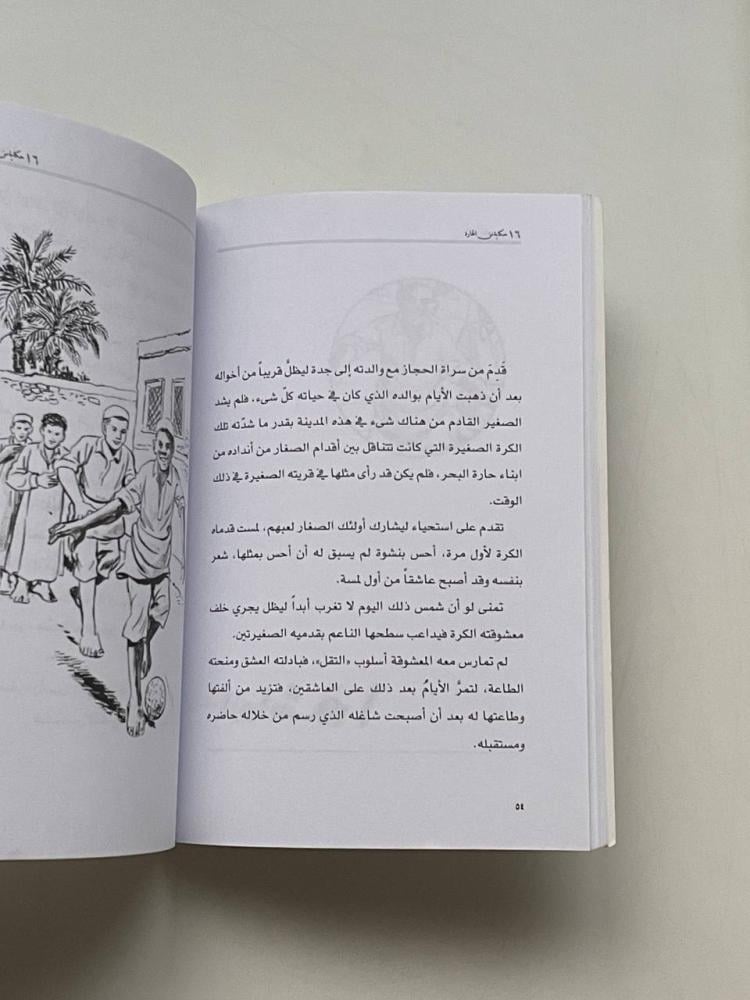 ١٦ حكاية من الحارة
قَدِمَ من سراة الحجاز مع والدته إلى جدة ليظلَّ قريباً من أخواله
بعد أن ذهبت الأيام بوالده الذي كان في حياته كلّ شىء، فلم يشد
الصغير القادم من هناك شىء في هذه المدينة بقدر ما شدّته تلك
الكرة الصغيرة التي كانت تتناقل بين أقدام الصغار من أنداده من
ابناء حارة البحر، فلم يكن قد رأى مثلها في قريته الصغيرة في ذلك
الوقت.
تقدم على استحياء ليشارك أولئك الصغار لعبهم، لمست قدماه
الكرة لأول مرة، أحس بنشوة لم يسبق له أن أحس بمثلها، شعر
بنفسه وقد أصبح عاشقاً من أول لمسة.
تمنى لو أن شمس ذلك اليوم لا تغرب أبداً ليظل يجري خلف
معشوقته الكرة فيداعب سطحها الناعم بقدميه الصغيرتين.
لم تمارس معه المعشوقة أسلوب «التقل»، فبادلته العشق ومنحته
الطاعة، لتمرَّ الأيامُ بعد ذلك على العاشقين، فتزيد من ألفتها
وطاعتها له بعد أن أصبحت شاغله الذي رسم من خلاله حاضره
ومستقبله.
٥٤